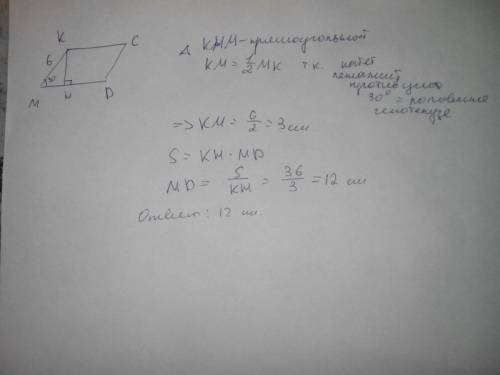 K C
6 30°
M H D
Δ КНМ - прямоугольный
KH = 1/2 MK т.к. катет
лежащий
против угла
30° = половине
гипотенузе
=> KH = 6/2 = 3 см
S = KH · MD
MD = S/KH = 36/3 = 12 см
Ответ: 12 см.